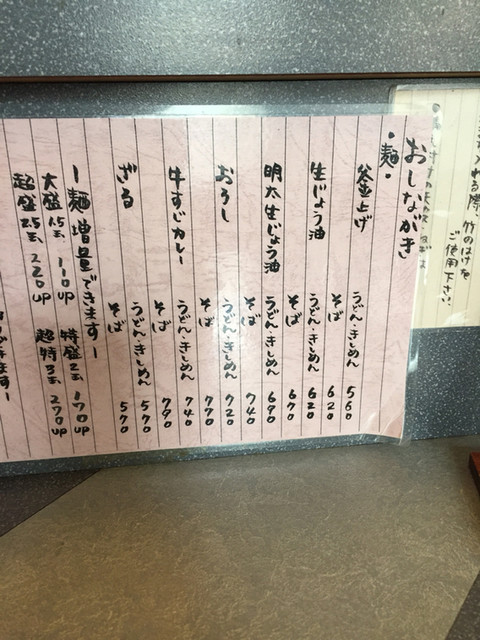 入れる際、竹のはけを
ご使用下さい。
おしながき
・麺・
釜上げ うどん・きしめん 560
そば 620
生じょう油 うどん・きしめん 620
そば 670
明太生じょう油 うどん・きしめん 690
そば 740
おろし うどん・きしめん 720
そば 770
牛すじカレー うどん・きしめん 740
そば 790
ざる うどん・きしめん 570
そば 570
ー麺増量できますー
大盛1.5玉 110up 特盛2玉 170up
超盛2.5玉 220up 超特3玉 270up
できますー